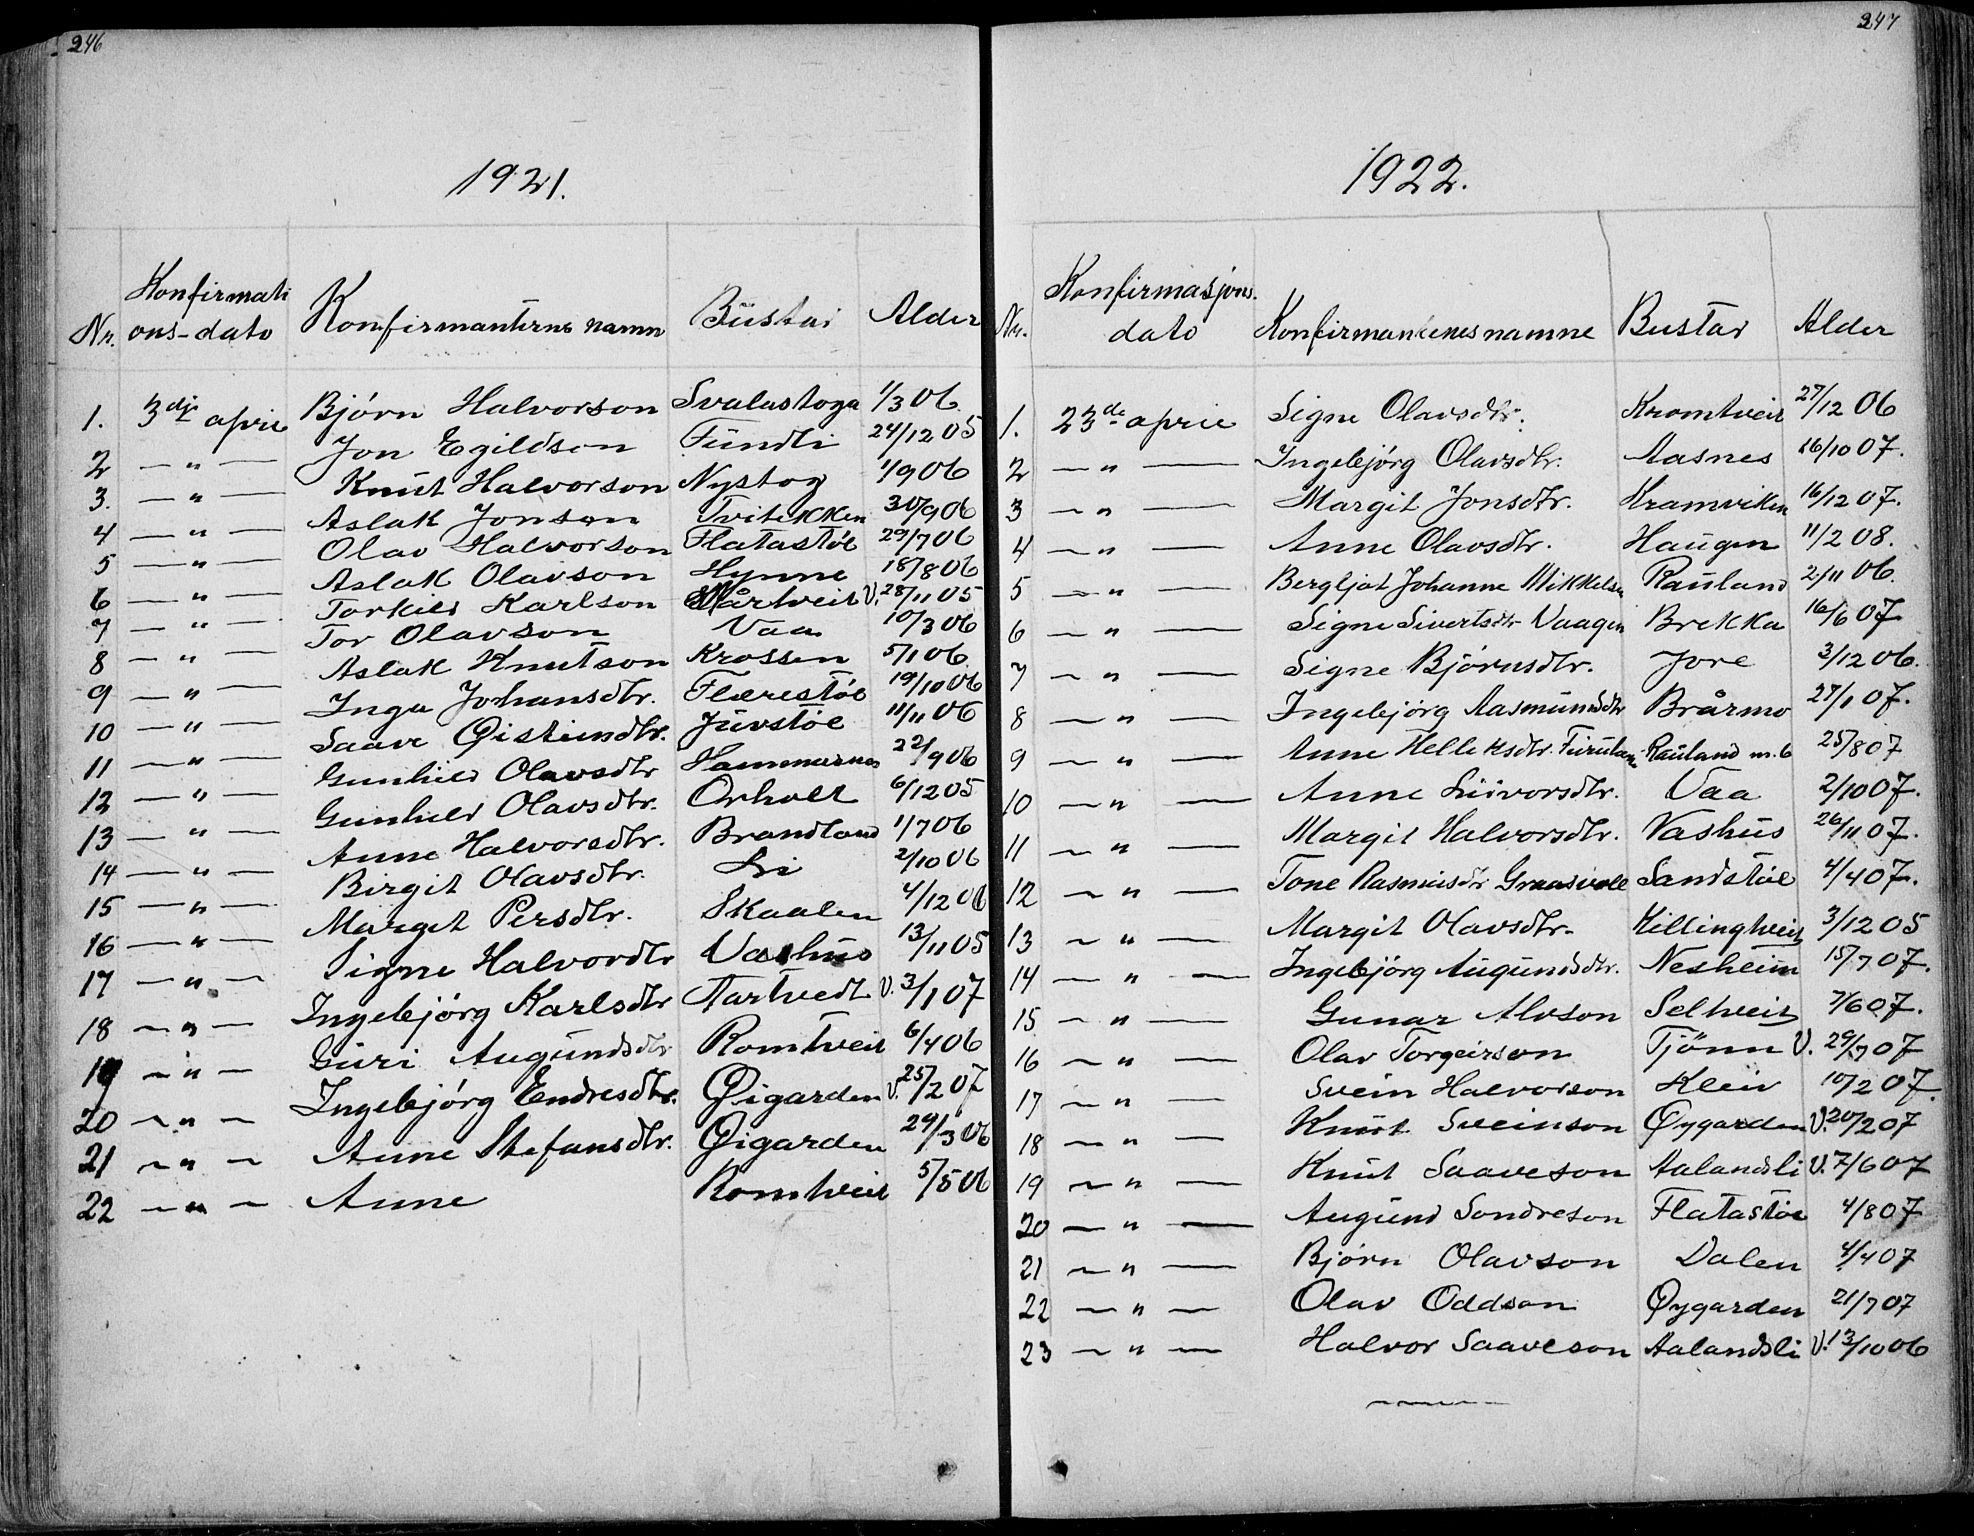 246
1921.
Konfirmati
Nr. ons-dato Konfirmanterne namn Büstar Alder
1. 3dje april Bjørn Halvorson Svalastoga 1/3 06.
2 — " — Jon Egildson Fündli 24/12 05
3. — " — Knüt Halvorson Nystog 1/9 06
4 — " — Aslak Jonson Tvitekken 30/9 06
5 — " — Olav Halvorson Flatastøl 29/7 06
6 — " — Aslak Olavson Hynne 18/8 06
7 — " — Torkild Karlson V. 28/11 05
8 — " — Tor Olavson Vaa 10/3 06
9 — " — Aslak Knutson Krossen 5/1 06.
10 — " — Inga Johansdtr. Flærestøl 19/10 06
11 — " — Saave Øistündtr. Jüvstøl 11/11 06
12 — " — Gunhild Olavsdtr Hammernes 22/9 06
13 — " — Gunhild Olavsdtr. Orholt 6/12 05
14 — " — Anne Halvorsdtr. Brandland 1/7 06
15 — " — Birgit Olavsdtr. Li 2/10 06
16 — " — Margit Persdtr. Skaalen 4/12 06
17 — " — Signe Halvordtr Vashus 13/11 05
18 — " — Ingebjørg Karlsdtr Aartvedt V. 3/1 07
19 — " — Güri Augündsdtr Romtveit 6/4 06
20 — " — Ingebjørg Endresdtr. Øigarden V. 25/2 07
21 — " — Anne Stefansdtr. Øigarden 24/3 06
22 — " — Anne Romtveit 5/5 06
247
1922.
Konfirmasjons-
Nr. dato Konfirmantenes namne Bustar Alder
1. 23de april Signe Olavsdtr. Kromtveit 27/12 06
2 — " — Ingebjørg Olavsdtr. Aasnes 16/10 07.
3 — " — Margit Jonsdtr. Kramviken 16/12 07.
4 — " — Anne Olavsdtr. Haugen 11/2 08.
5 — " — Bergljot Johanne Mikkelsen Rauland 2/11 06.
6 — " — Signe Sivertsdtr Vaagen Brekka 16/6 07
7 — " — Signe Bjørnsdtr. Jore 3/12 06.
8 — " — Ingebjørg Aasmundsdtr Brårmo 27/1 07.
9 — " — Anne Helleksdtr. Rauland m. 6 25/8 07
10 — " — Anne Liivorsdtr. Vaa 2/10 07.
11 — " — Margit Halvorsdtr. Vashus 26/11 07.
12 — " — Tone Rasmusdtr Graasvoll Sandstøl 4/4 07.
13 — " — Margit Olavsdtr. Killingtveit 3/12 05
14 — " — Ingebjørg Augundsdtr. Nesheim 15/7 07.
15 — " — Gunar Alvson Seltveit 7/6 07.
16 — " — Olav Torgeirson Tjönn V. 29/7 07
17 — " — Svein Halvorson Kleiv 10/2 07.
18 — " — Knüt Sveinson Øygarden V. 20/2 07
19 — " — Knut Saaveson Aalandsli V. 7/6 07
20 — " — Augund Sondreson Flatastøl 4/8 07
21 — " — Bjørn Olavson Dalen 4/4 07
22 — " — Olav Oddson Øygarden 21/7 07
23 — " — Halvor Saaveson Aalandsli V. 13/10 06